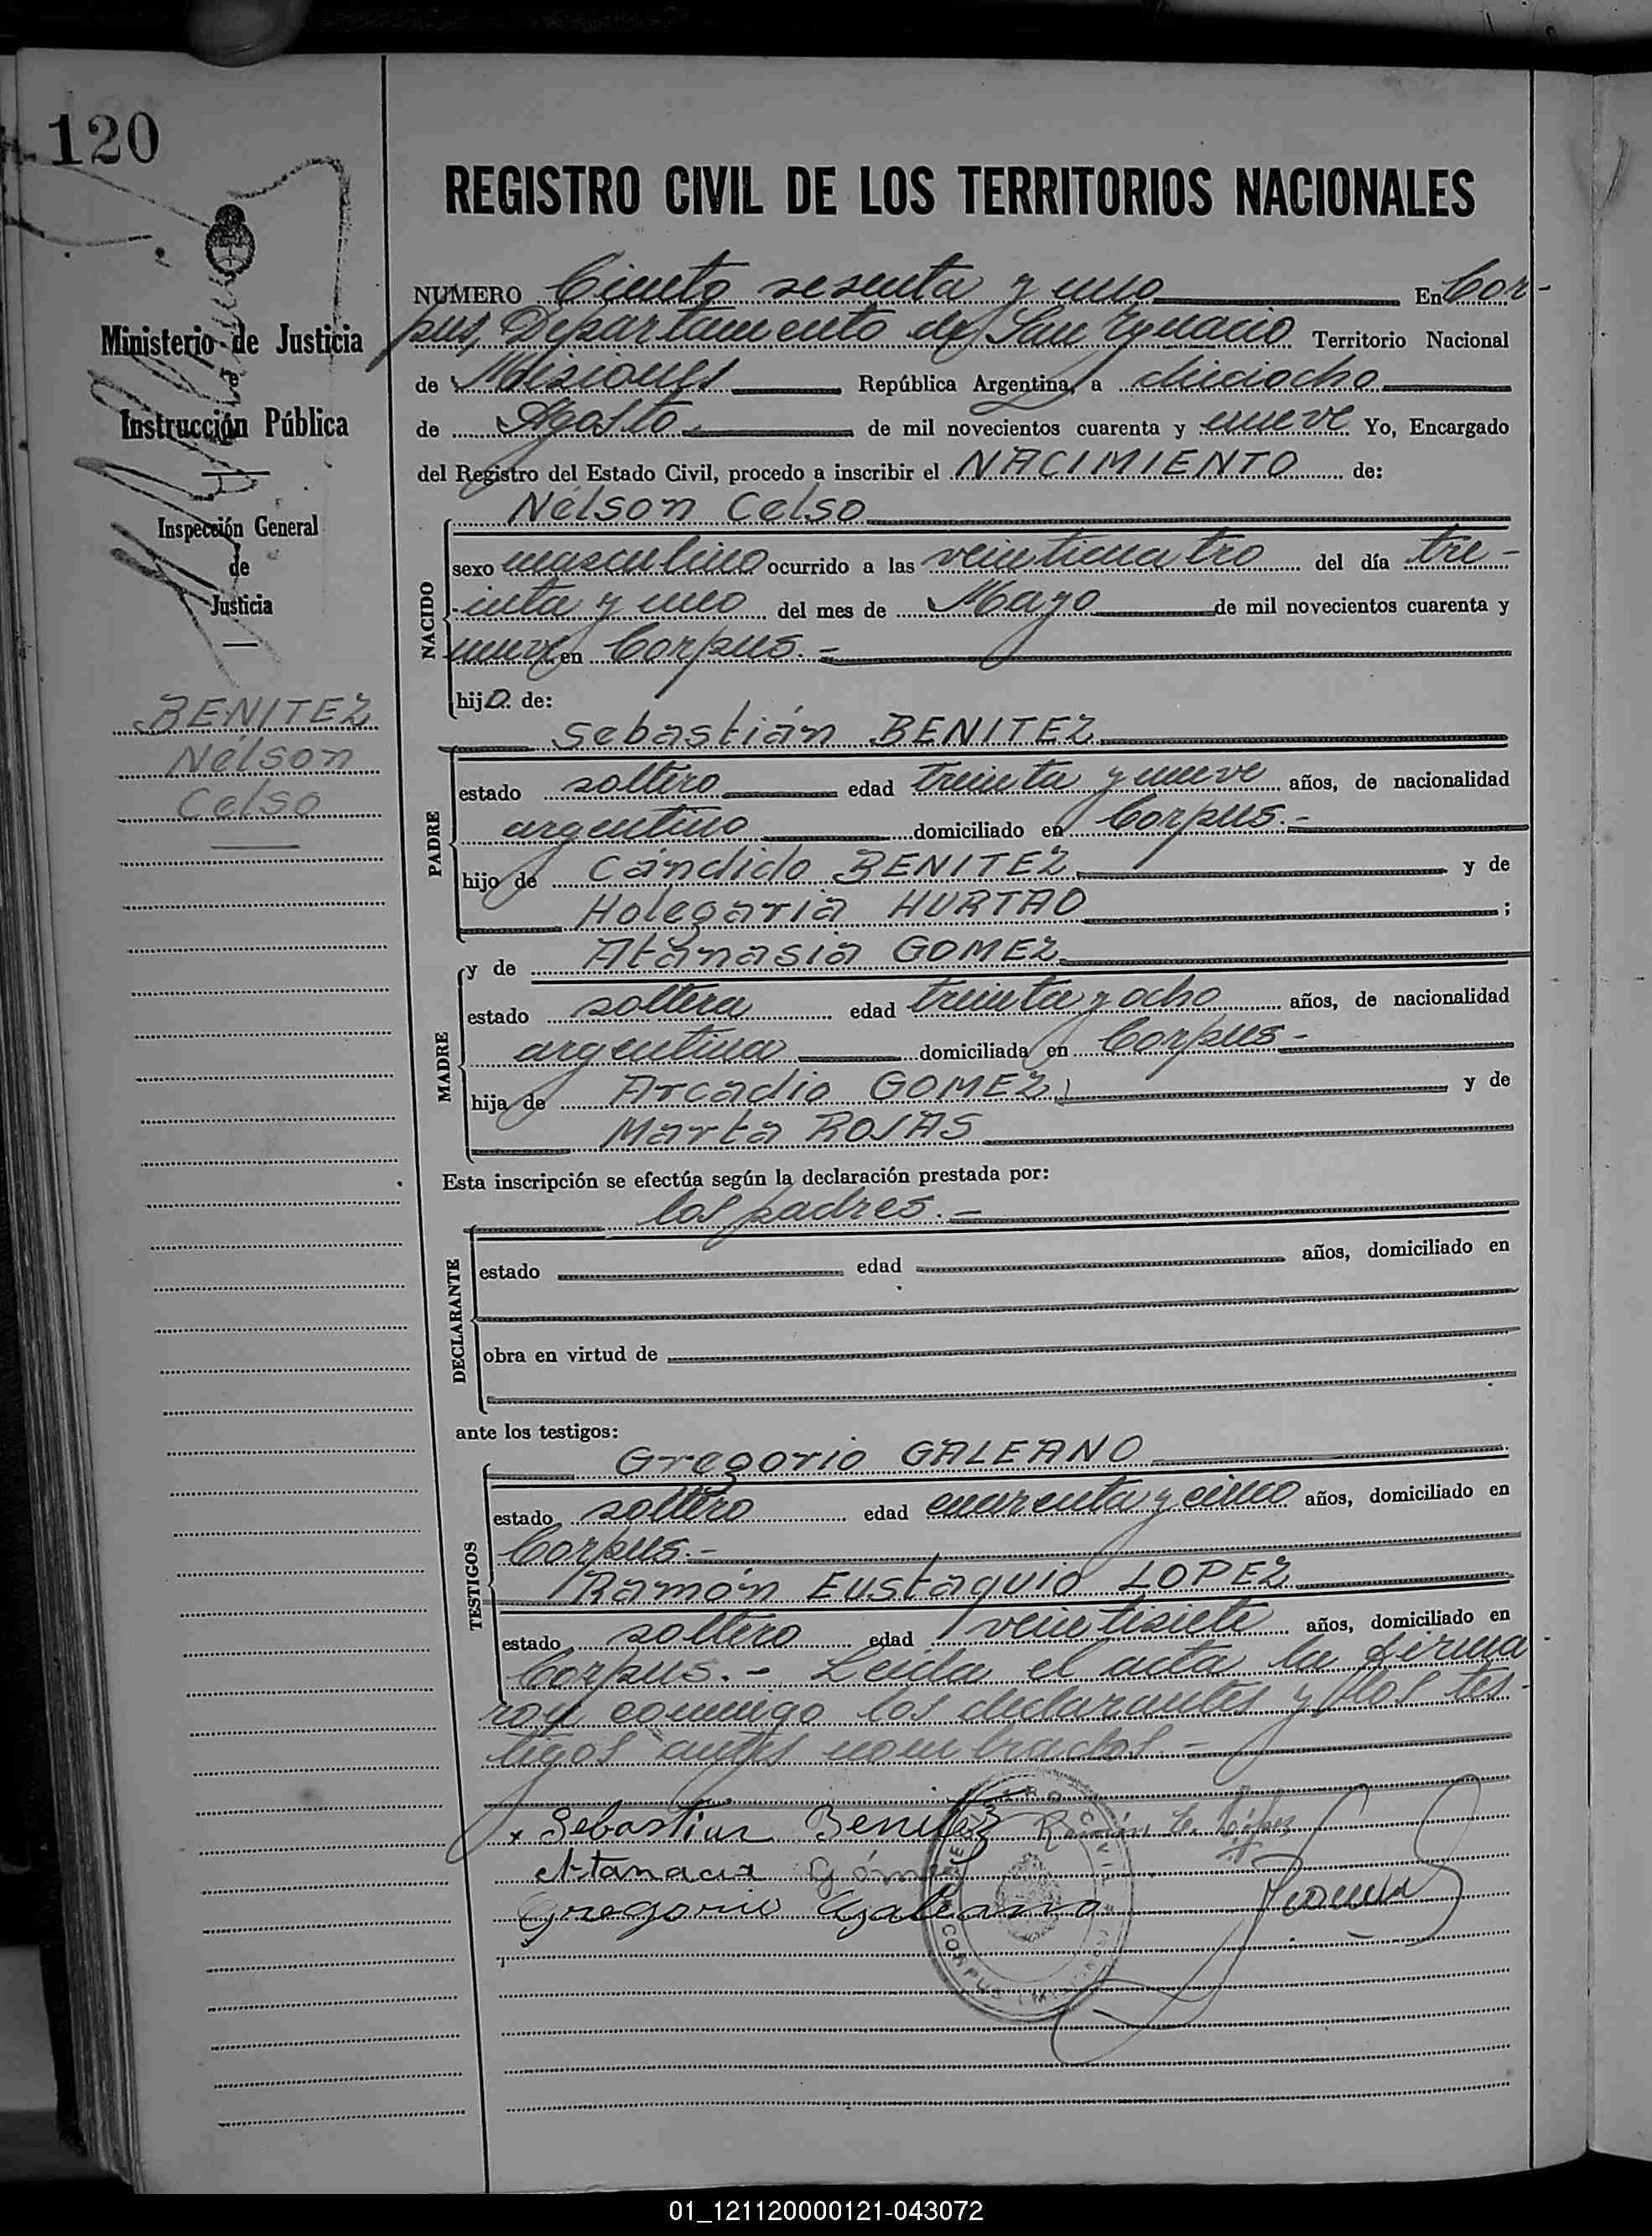 120
REGISTRO CIVIL DE LOS TERRITORIOS NACIONALES
Ministerio de Justicia
e
Instrucción Pública
Inspección General
de
Justicia
BENITEZ
Nélson
Celso
NUMERO Ciento sesenta y uno En Cor-
pus, Departamento de San Ygnacio Territorio Nacional
de Misiones República Argentina, a dieciocho
de Agosto de mil novecientos cuarenta y nueve Yo, Encargado
del Registro del Estado Civil, procedo a inscribir el NACIMIENTO de:
Nélson Celso
NACIDO
sexo masculino ocurrido a las veinticuatro del día tre-
inta y uno del mes de Mayo de mil novecientos cuarenta y
nueve en Corpus.-
hijo de:
Sebastián BENITEZ
PADRE
estado soltero edad treinta y nueve años, de nacionalidad
argentino domiciliado en Corpus.-
hijo de Cándido BENITEZ y de
Holegaria HURTAO ;
y de Atanasia GOMEZ
MADRE
estado soltera edad treinta y ocho años, de nacionalidad
argentina domiciliada en Corpus-
hija de Arcadio GOMEZ y de
Marta ROJAS
Esta inscripción se efectúa según la declaración prestada por:
los padres.-
DECLARANTE
estado edad años, domiciliado en
obra en virtud de
ante los testigos:
Gregorio GALEANO
TESTIGOS
estado soltero edad cuarenta y cinco años, domiciliado en
Corpus.-
Ramón Eustaquio LOPEZ
estado soltero edad veintisiete años, domiciliado en
Corpus.- Leida el acta la firma-
ron conmigo los declarantes y los tes-
tigos antes nombrados.-
x Sebastian Benitez Ramón E. López
Atanacia Gómez
Gregorio Galeano
CORPUS (MISIONES)
01_121120000121-043072